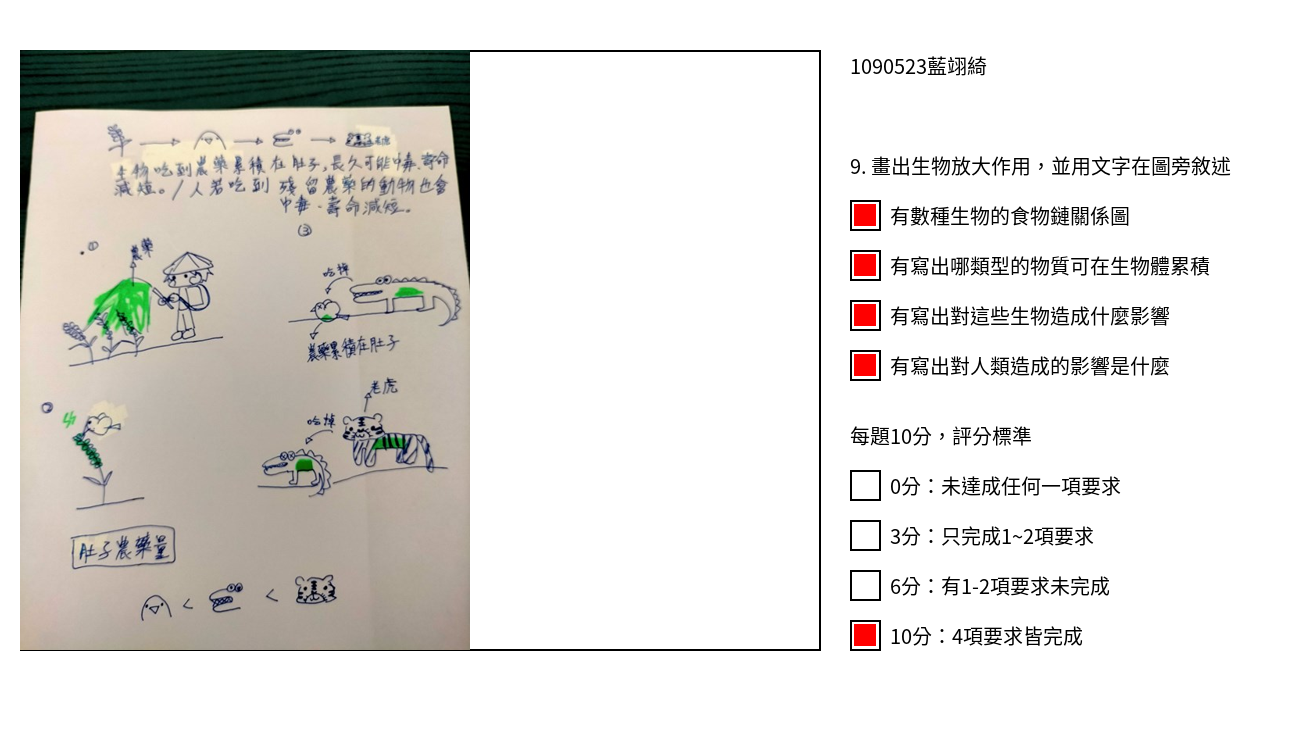 生物吃到農藥累積在肚子,長久可能中毒、壽命
減短。/人若吃到 殘留農藥的動物也會
中毒、壽命減短。
①
農藥
②
③
吃掉
農藥累積在肚子
老虎
吃掉
肚子農藥量
< <
1090523藍翊綺
9. 畫出生物放大作用，並用文字在圖旁敘述
有數種生物的食物鏈關係圖
有寫出哪類型的物質可在生物體累積
有寫出對這些生物造成什麼影響
有寫出對人類造成的影響是什麼
每題10分，評分標準
0分：未達成任何一項要求
3分：只完成1~2項要求
6分：有1-2項要求未完成
10分：4項要求皆完成